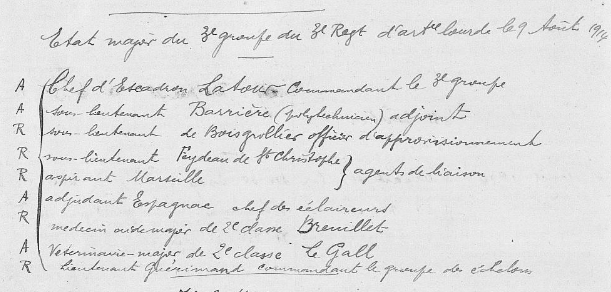 Etat major du 3e groupe du 3e Regt d'artie lourde le 9 Août 1914
A Chef d'Escadron Latour commandant le 3e groupe
A sous-lieutenant Barrière (polytechnicien) adjoint
R sous-lieutenant de Boisgrollier officier d'approvisionnement
R sous-lieutenant Feydeau de St Christophe } agents de liaison
R aspirant Marseille
A adjudant Espagnac chef des éclaireurs
R medecin aide major de 2e classe Breuillet
A Veterinaire-major de 2e classe Le Gall
R Lieutenant Guérimand commandant le groupe des échelons